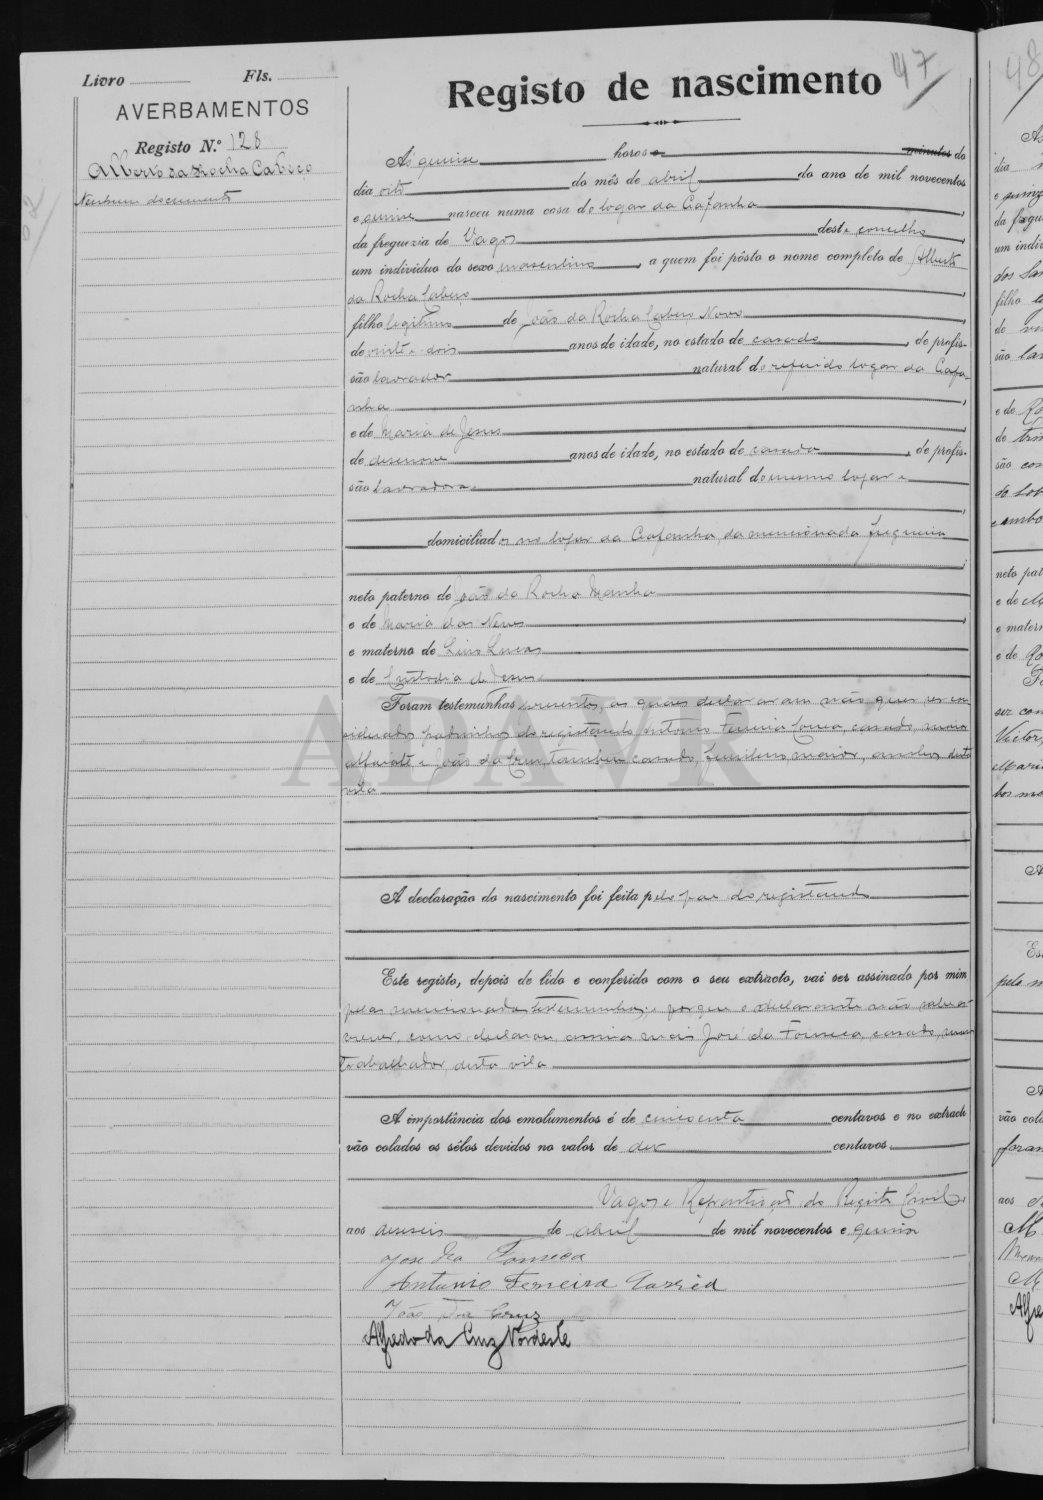 Livro Fls.
AVERBAMENTOS
Registo N.º 128
Alberto da Rocha Cabeço
Nenhum documento
47
Registo de nascimento
Às quinse horas minutos do
dia oito do mês de abril do ano de mil novecentos
e quinse nasceu numa casa do logar da Gafanha,
da freguezia de Vagos deste concelho,
um individuo do sexo masculino, a quem foi pôsto o nome completo de Alberto
da Rocha Cabeço,
filho legitimo de João da Rocha Cabeço Novo,
de vinte e dois anos de idade, no estado de casado, de profis-
são lavrador natural do referido logar da Gafa-
nha,
e de Maria de Jesus,
de desenove anos de idade, no estado de casada, de profis-
são lavradora, natural do mesmo logar e
domiciliados no logar da Gafanha, da mencionada freguesia
neto paterno de João da Rocha
e de Maria das Neves,
e materno de Luis Lucas
e de Custodia de Jesus.
Foram testemunhas presentes, as quais declararam não querer ser con-
siderados padrinhos do registando Antonio Ferreira Correa, casado, maior
alfaiate e João da Cruz, tambem casado, funileiro, maior, ambos desta
vila
A declaração do nascimento foi feita pelo pae do registando
Este registo, depois de lido e conferido com o seu extracto, vai ser assinado por mim
pelas mencionadas testemunhas; e porque o declarante não sabe es-
crever, como declarou, assina mais José da Fonseca, casado, maior
trabalhador, desta vila
A importância dos emolumentos é de cincoenta centavos e no extracto
vão colados os sêlos devidos no valor de dez centavos.
Vagos e Repartição do Registo Civil,
aos deseseis de abril de mil novecentos e quinse
José da Fonseca
Antonio Ferreira Corrêa
João da Cruz
Alfredo da Cruz Nordeste
ADAVR
48